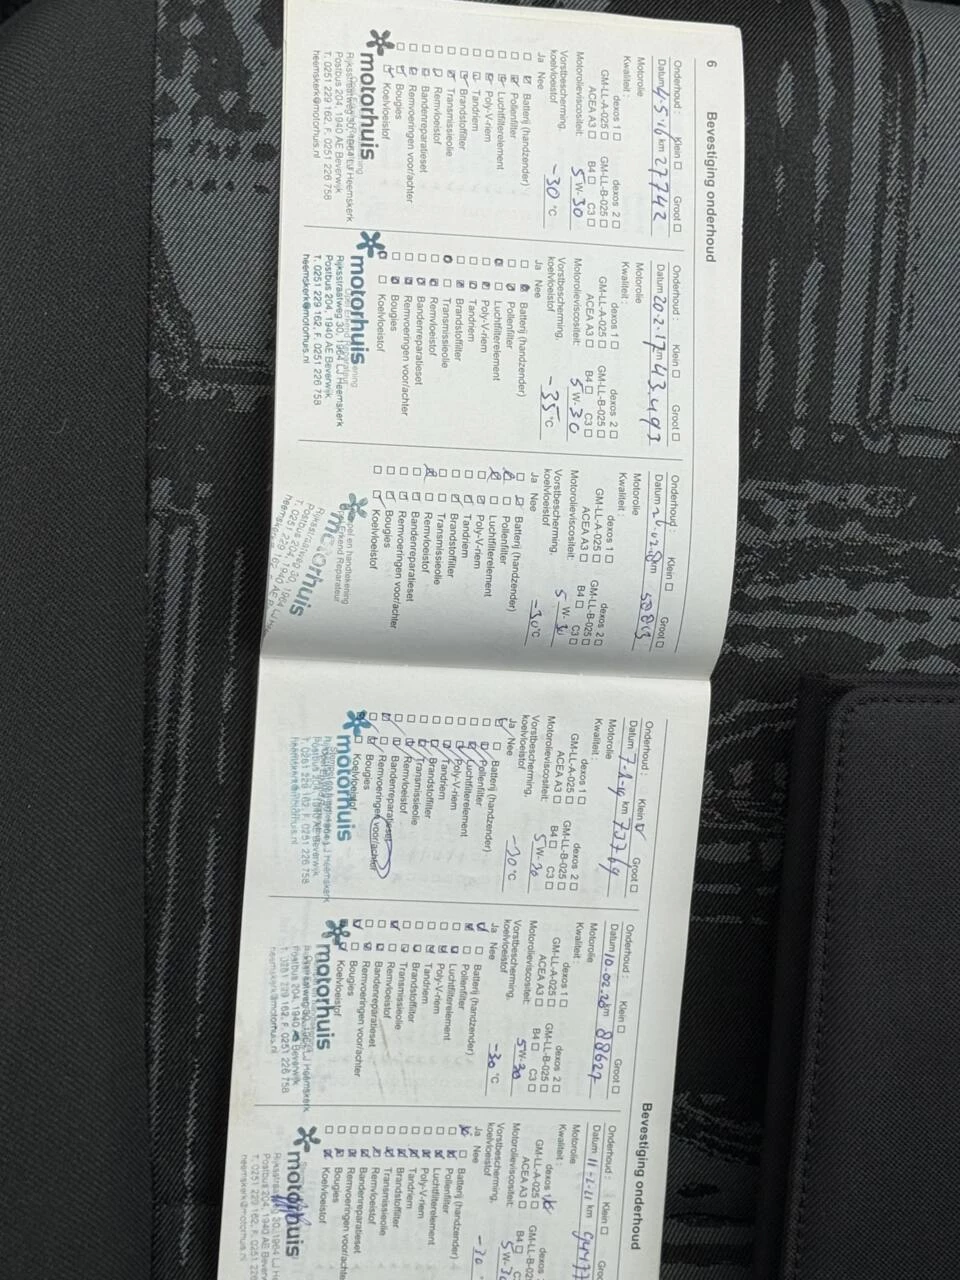 6
Bevestiging onderhoud
Onderhoud : Klein □ Groot □
Datum 4.5.16 km 27742
Motorolie
Kwaliteit : dexos 1 □ dexos 2 □
GM-LL-A-025 □ GM-LL-B-025 □
ACEA A3 □ B4 □ C3 □
Motorolieviscositeit: 5W-30
Vorstbescherming,
koelvloeistof -30 °C
Ja Nee
Batterij (handzender)
Pollenfilter
Luchtfilterelement
Poly-V-riem
Tandriem
Brandstoffilter
Transmissieolie
Remvloeistof
Bandenreparatieset
Remvoeringen voor/achter
Bougies
Koelvloeistof
motorhuis
Rijksstraatweg 30, 1964 LJ Heemskerk
Postbus 204, 1940 AE Beverwijk
T. 0251 229 162, F. 0251 226 758
heemskerk@motorhuis.nl
Onderhoud : Klein □ Groot □
Datum 20.2.17 km 43.493
Motorolie
Kwaliteit : dexos 1 □ dexos 2 □
GM-LL-A-025 □ GM-LL-B-025 □
ACEA A3 □ B4 □ C3 □
Motorolieviscositeit: 5W-30
Vorstbescherming,
koelvloeistof -35 °C
Ja Nee
Batterij (handzender)
Pollenfilter
Luchtfilterelement
Poly-V-riem
Tandriem
Brandstoffilter
Transmissieolie
Remvloeistof
Bandenreparatieset
Remvoeringen voor/achter
Bougies
Koelvloeistof
motorhuis
Rijksstraatweg 30, 1964 LJ Heemskerk
Postbus 204, 1940 AE Beverwijk
T. 0251 229 162, F. 0251 226 758
heemskerk@motorhuis.nl
Onderhoud : Klein □ Groot □
Datum km
Motorolie
Kwaliteit : dexos 1 □ dexos 2 □
GM-LL-A-025 □ GM-LL-B-025 □
ACEA A3 □ B4 □ C3 □
Motorolieviscositeit: 5 W-30
Vorstbescherming,
koelvloeistof -30 °C
Ja Nee
Batterij (handzender)
Pollenfilter
Luchtfilterelement
Poly-V-riem
Tandriem
Brandstoffilter
Transmissieolie
Remvloeistof
Bandenreparatieset
Remvoeringen voor/achter
Bougies
Koelvloeistof
Stempel en handtekening
Opel Erkend Reparateur
motorhuis
Bevestiging onderhoud
Onderhoud : Klein □ Groot □
Datum km 73769
Motorolie
Kwaliteit : dexos 1 □ dexos 2 □
GM-LL-A-025 □ GM-LL-B-025 □
ACEA A3 □ B4 □ C3 □
Motorolieviscositeit: 5W-30
Vorstbescherming,
koelvloeistof °C
Ja Nee
Batterij (handzender)
Pollenfilter
Luchtfilterelement
Poly-V-riem
Tandriem
Brandstoffilter
Transmissieolie
Remvloeistof
Bandenreparatieset
Remvoeringen voor/achter
Bougies
Koelvloeistof
motorhuis
Rijksstraatweg 30, 1964 LJ Heemskerk
Postbus 204, 1940 AE Beverwijk
T. 0251 229 162, F. 0251 226 758
heemskerk@motorhuis.nl
Onderhoud : Klein □ Groot □
Datum km 88627
Motorolie
Kwaliteit : dexos 1 □ dexos 2 □
GM-LL-A-025 □ GM-LL-B-025 □
ACEA A3 □ B4 □ C3 □
Motorolieviscositeit: 5W-30
Vorstbescherming,
koelvloeistof -30 °C
Ja Nee
Batterij (handzender)
Pollenfilter
Luchtfilterelement
Poly-V-riem
Tandriem
Brandstoffilter
Transmissieolie
Remvloeistof
Bandenreparatieset
Remvoeringen voor/achter
Bougies
Koelvloeistof
motorhuis
Rijksstraatweg 30, 1964 LJ Heemskerk
Postbus 204, 1940 AE Beverwijk
T. 0251 229 162, F. 0251 226 758
heemskerk@motorhuis.nl
Onderhoud : Klein □
Datum 11-2-21 km
Motorolie
Kwaliteit : dexos 1 dexos
GM-LL-A-025 □ GM-LL-B-02
ACEA A3 □ B4 □
Motorolieviscositeit:
Vorstbescherming,
koelvloeistof -30
Ja Nee
Batterij (handzender)
Pollenfilter
Luchtfilterelement
Poly-V-riem
Tandriem
Brandstoffilter
Transmissieolie
Remvloeistof
Bandenreparatieset
Remvoeringen voor/achter
Bougies
Koelvloeistof
motorhuis